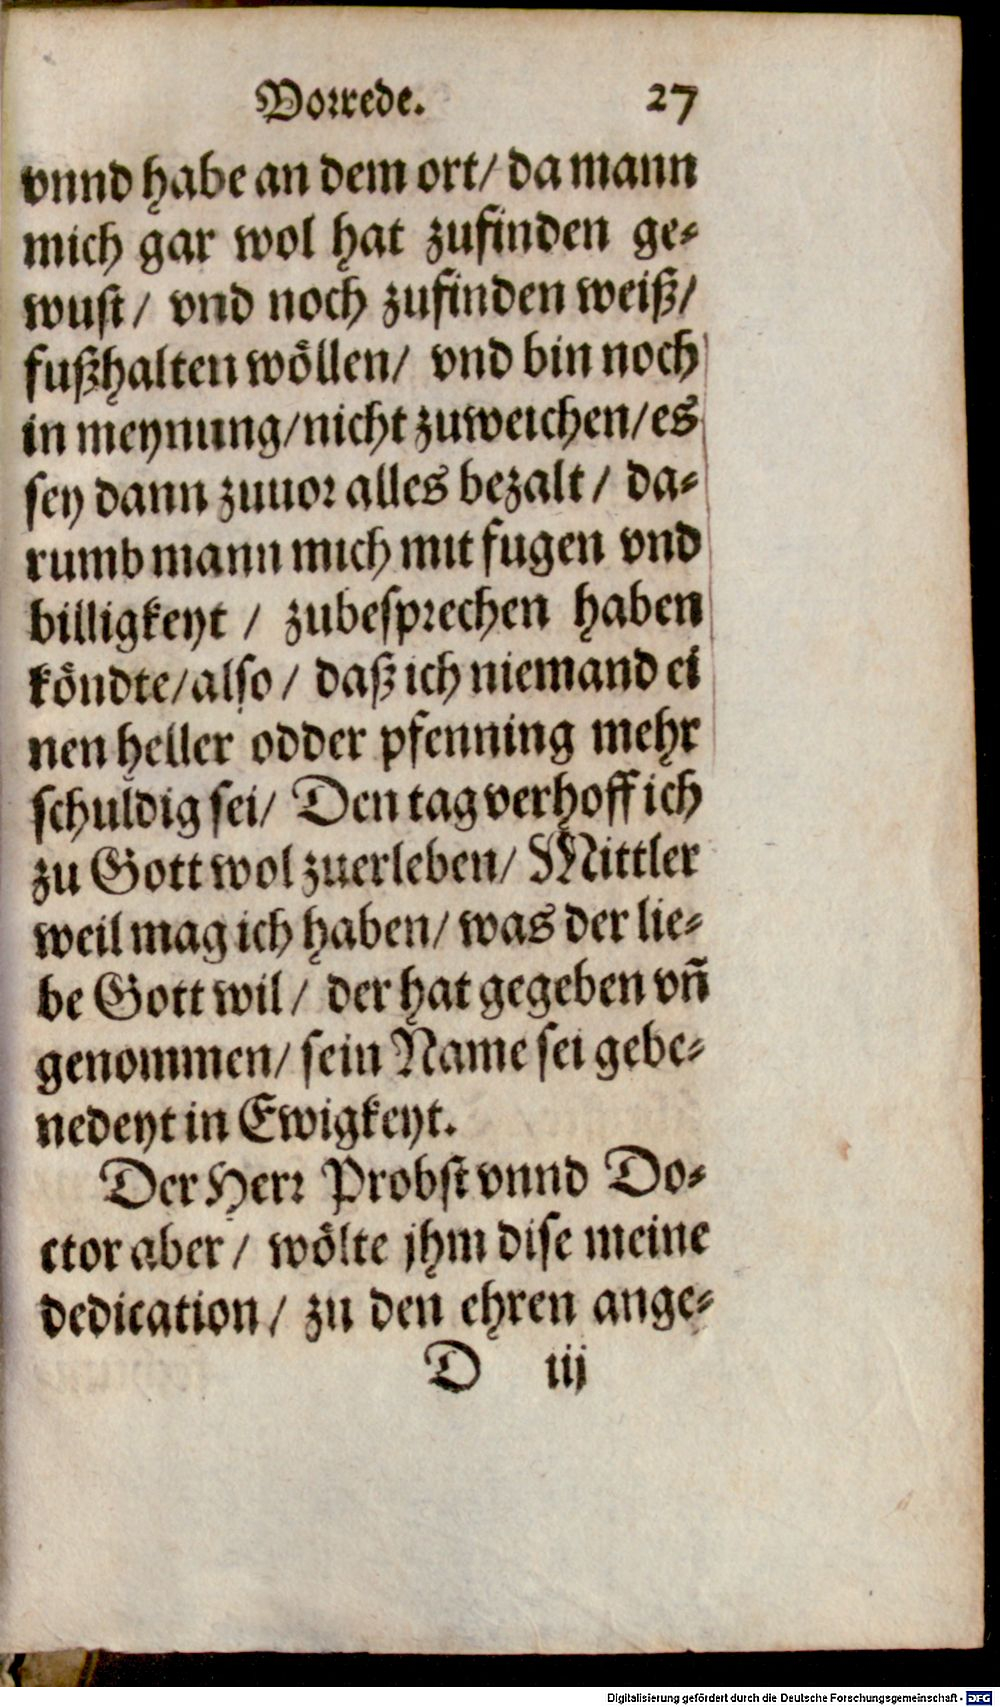 Vorrede. 27
vnnd habe an dem ort/ da mann
mich gar wol hat zufinden ge-
wust/ vnd noch zufinden weiß/
fußhalten wöllen/ vnd bin noch
in meynung/ nicht zuweichen/ es
sey dann zuuor alles bezalt/ da-
rumb mann mich mit fugen vnd
billigkeyt/ zubesprechen haben
köndte/ also/ daß ich niemand ei
nen heller odder pfenning mehr
schuldig sei/ Den tag verhoff ich
zu Gott wol zuerleben/ Mittler
weil mag ich haben/ was der lie-
be Gott wil/ der hat gegeben vñ
genommen/ sein Name sei gebe-
nedeyt in Ewigkeyt.
Der Herr Probst vnnd Do-
ctor aber/ wölte jhm dise meine
dedication/ zu den ehren ange-
D iij
Digitalisierung gefördert durch die Deutsche Forschungsgemeinschaft - DFG